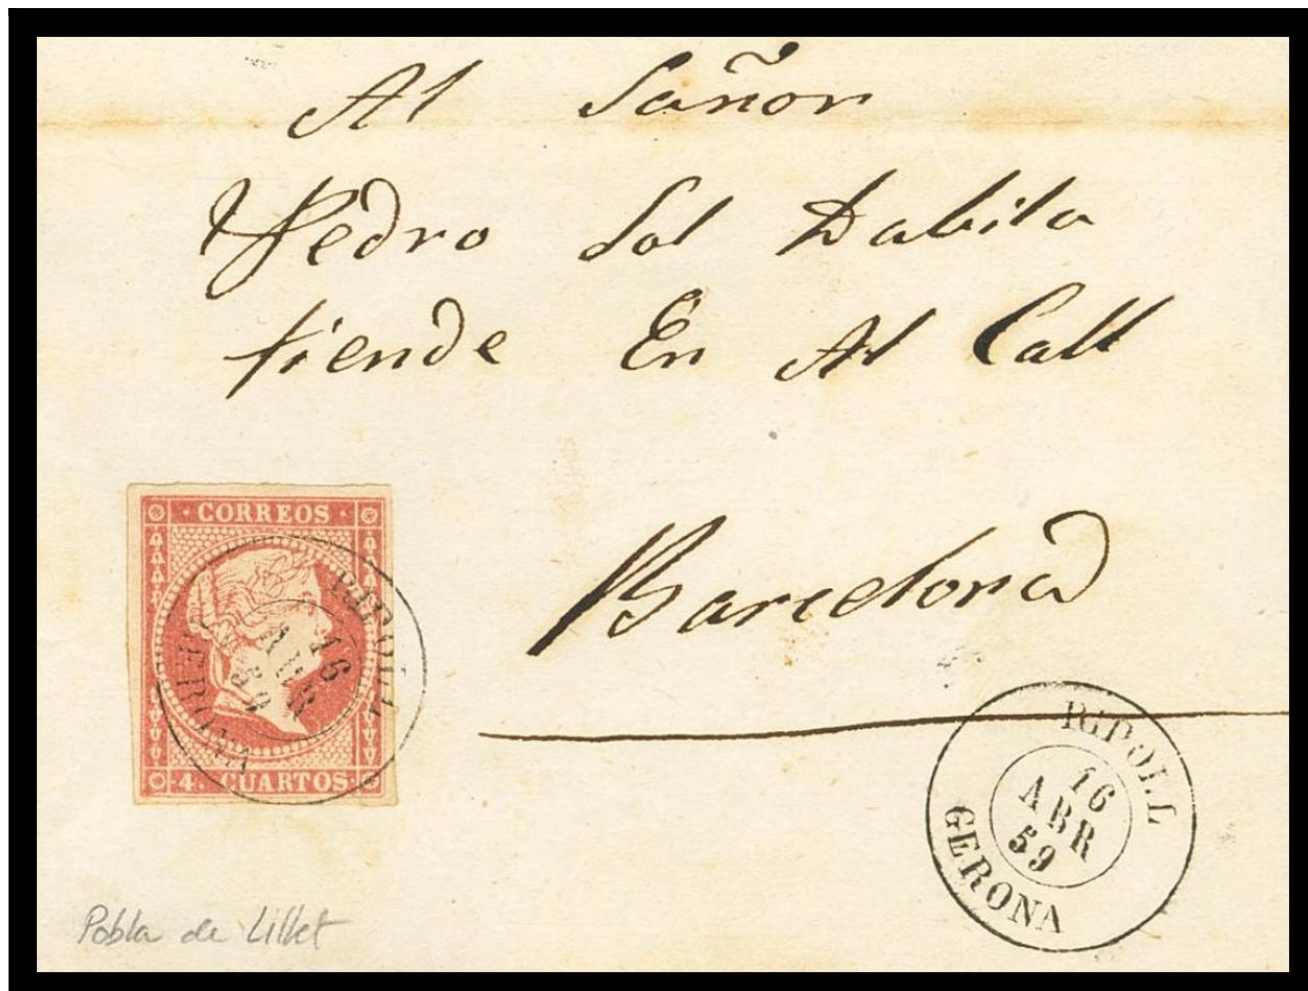 Al Sañor
Pedro Sol Dabila
tiende En Al Call
Barcelona
CORREOS
4. CUARTOS
RIPOLL
16
ABR
59
GERONA
RIPOLL
16
ABR
59
GERONA
Pobla de Lillet